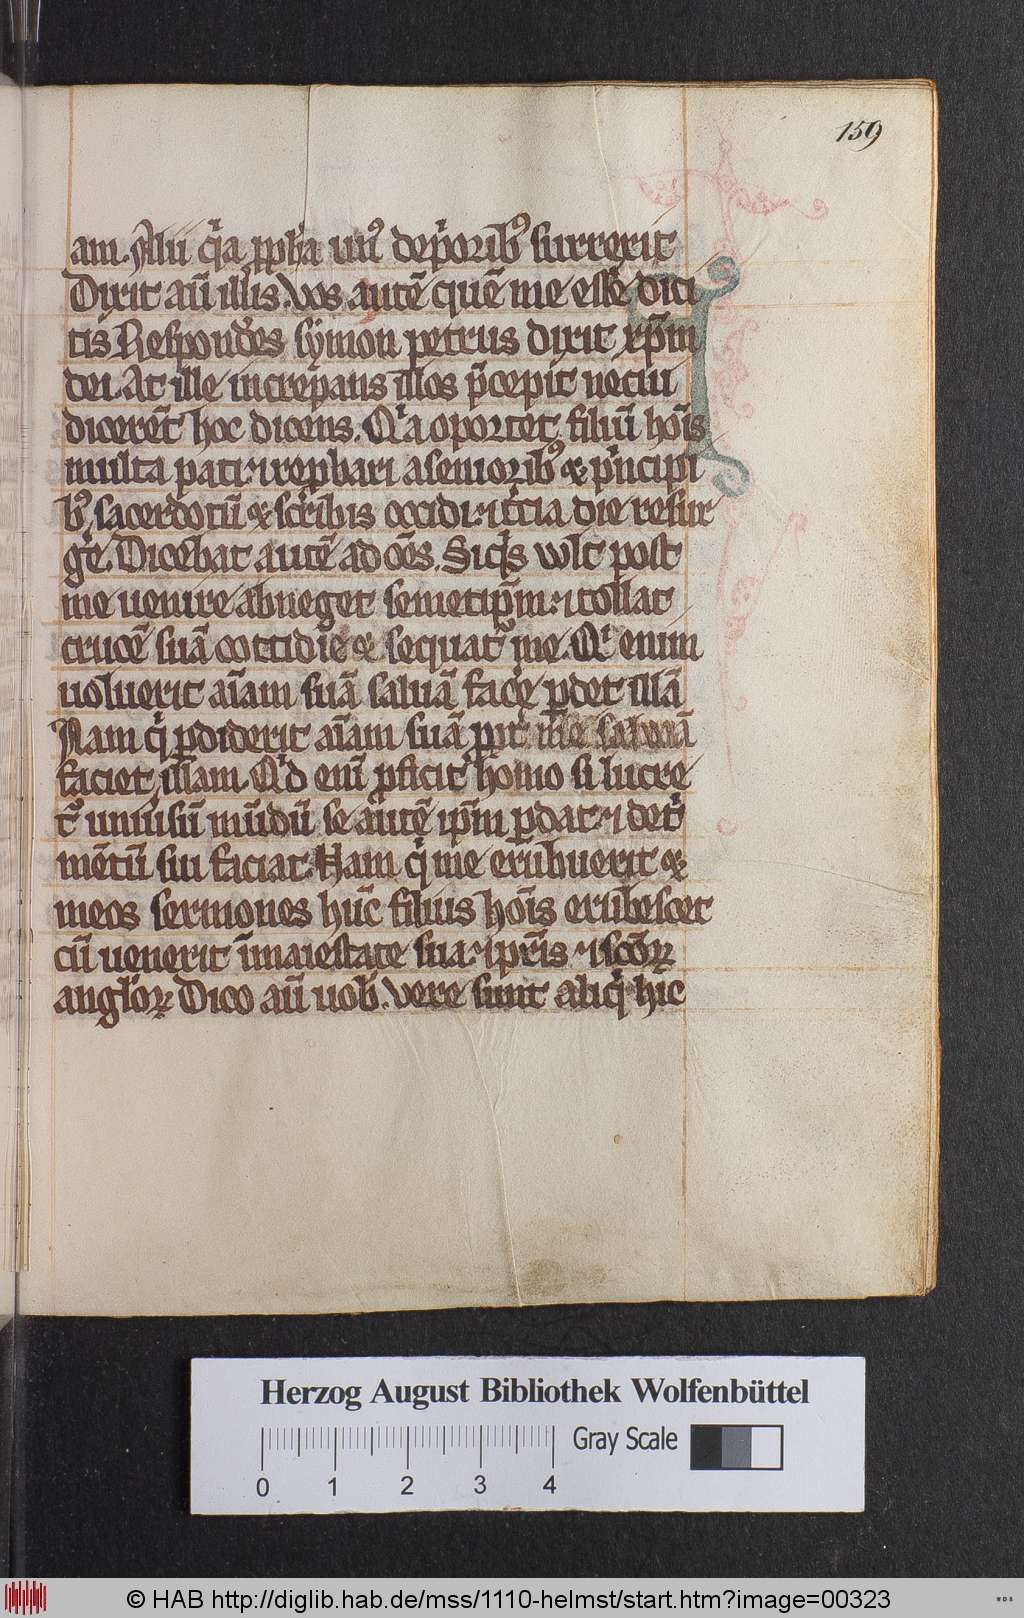 159
am. Alii q͛a ꝓph̄a unꝰ de p͛orib̉ surrexit
Dixit aū illis. Vos autē quē me esse dici
tis Respond̄es symon petrus dixit xp̄m
dei. At ille increpans illos p̄cepit ne cui
dicerēt hoc dicens. Q͛a oportet filiū hoīs
multa pati ⁊ reprobari a seniorib̉ & p͛ncipi
b̉ sacerdotū & scribis occidi ⁊ t͛cia die resur
ge͛. Dicebat autē ad oēs. Siq͛s vult post
me uenire abneget semetip̄m ⁊ tollat
crucē suā cottidie & sequat᷑ me. Q͛ enim
uoluerit aīam suā saluā face͛ ꝑdet illā
Nam q͛ ꝑdiderit aīam suā ꝓpt͛ me saluā
faciet illam. Q͛d enī ꝓficit homo si lucre
t᷑ uniuersū mūdū se autē ip̄m ꝑdat ⁊ det͛
mētū sui faciat. Nam q͛ me erubuerit &
meos sermones hūc filius hoīs erubescet
cū uenerit ī maiestate sua ⁊ pr̄is ⁊ sc̄oꝝ
angloꝝ Dico aū uob̄. vere sunt aliq͛ hic
Herzog August Bibliothek Wolfenbüttel
0 1 2 3 4 Gray Scale
© HAB http://diglib.hab.de/mss/1110-helmst/start.htm?image=00323